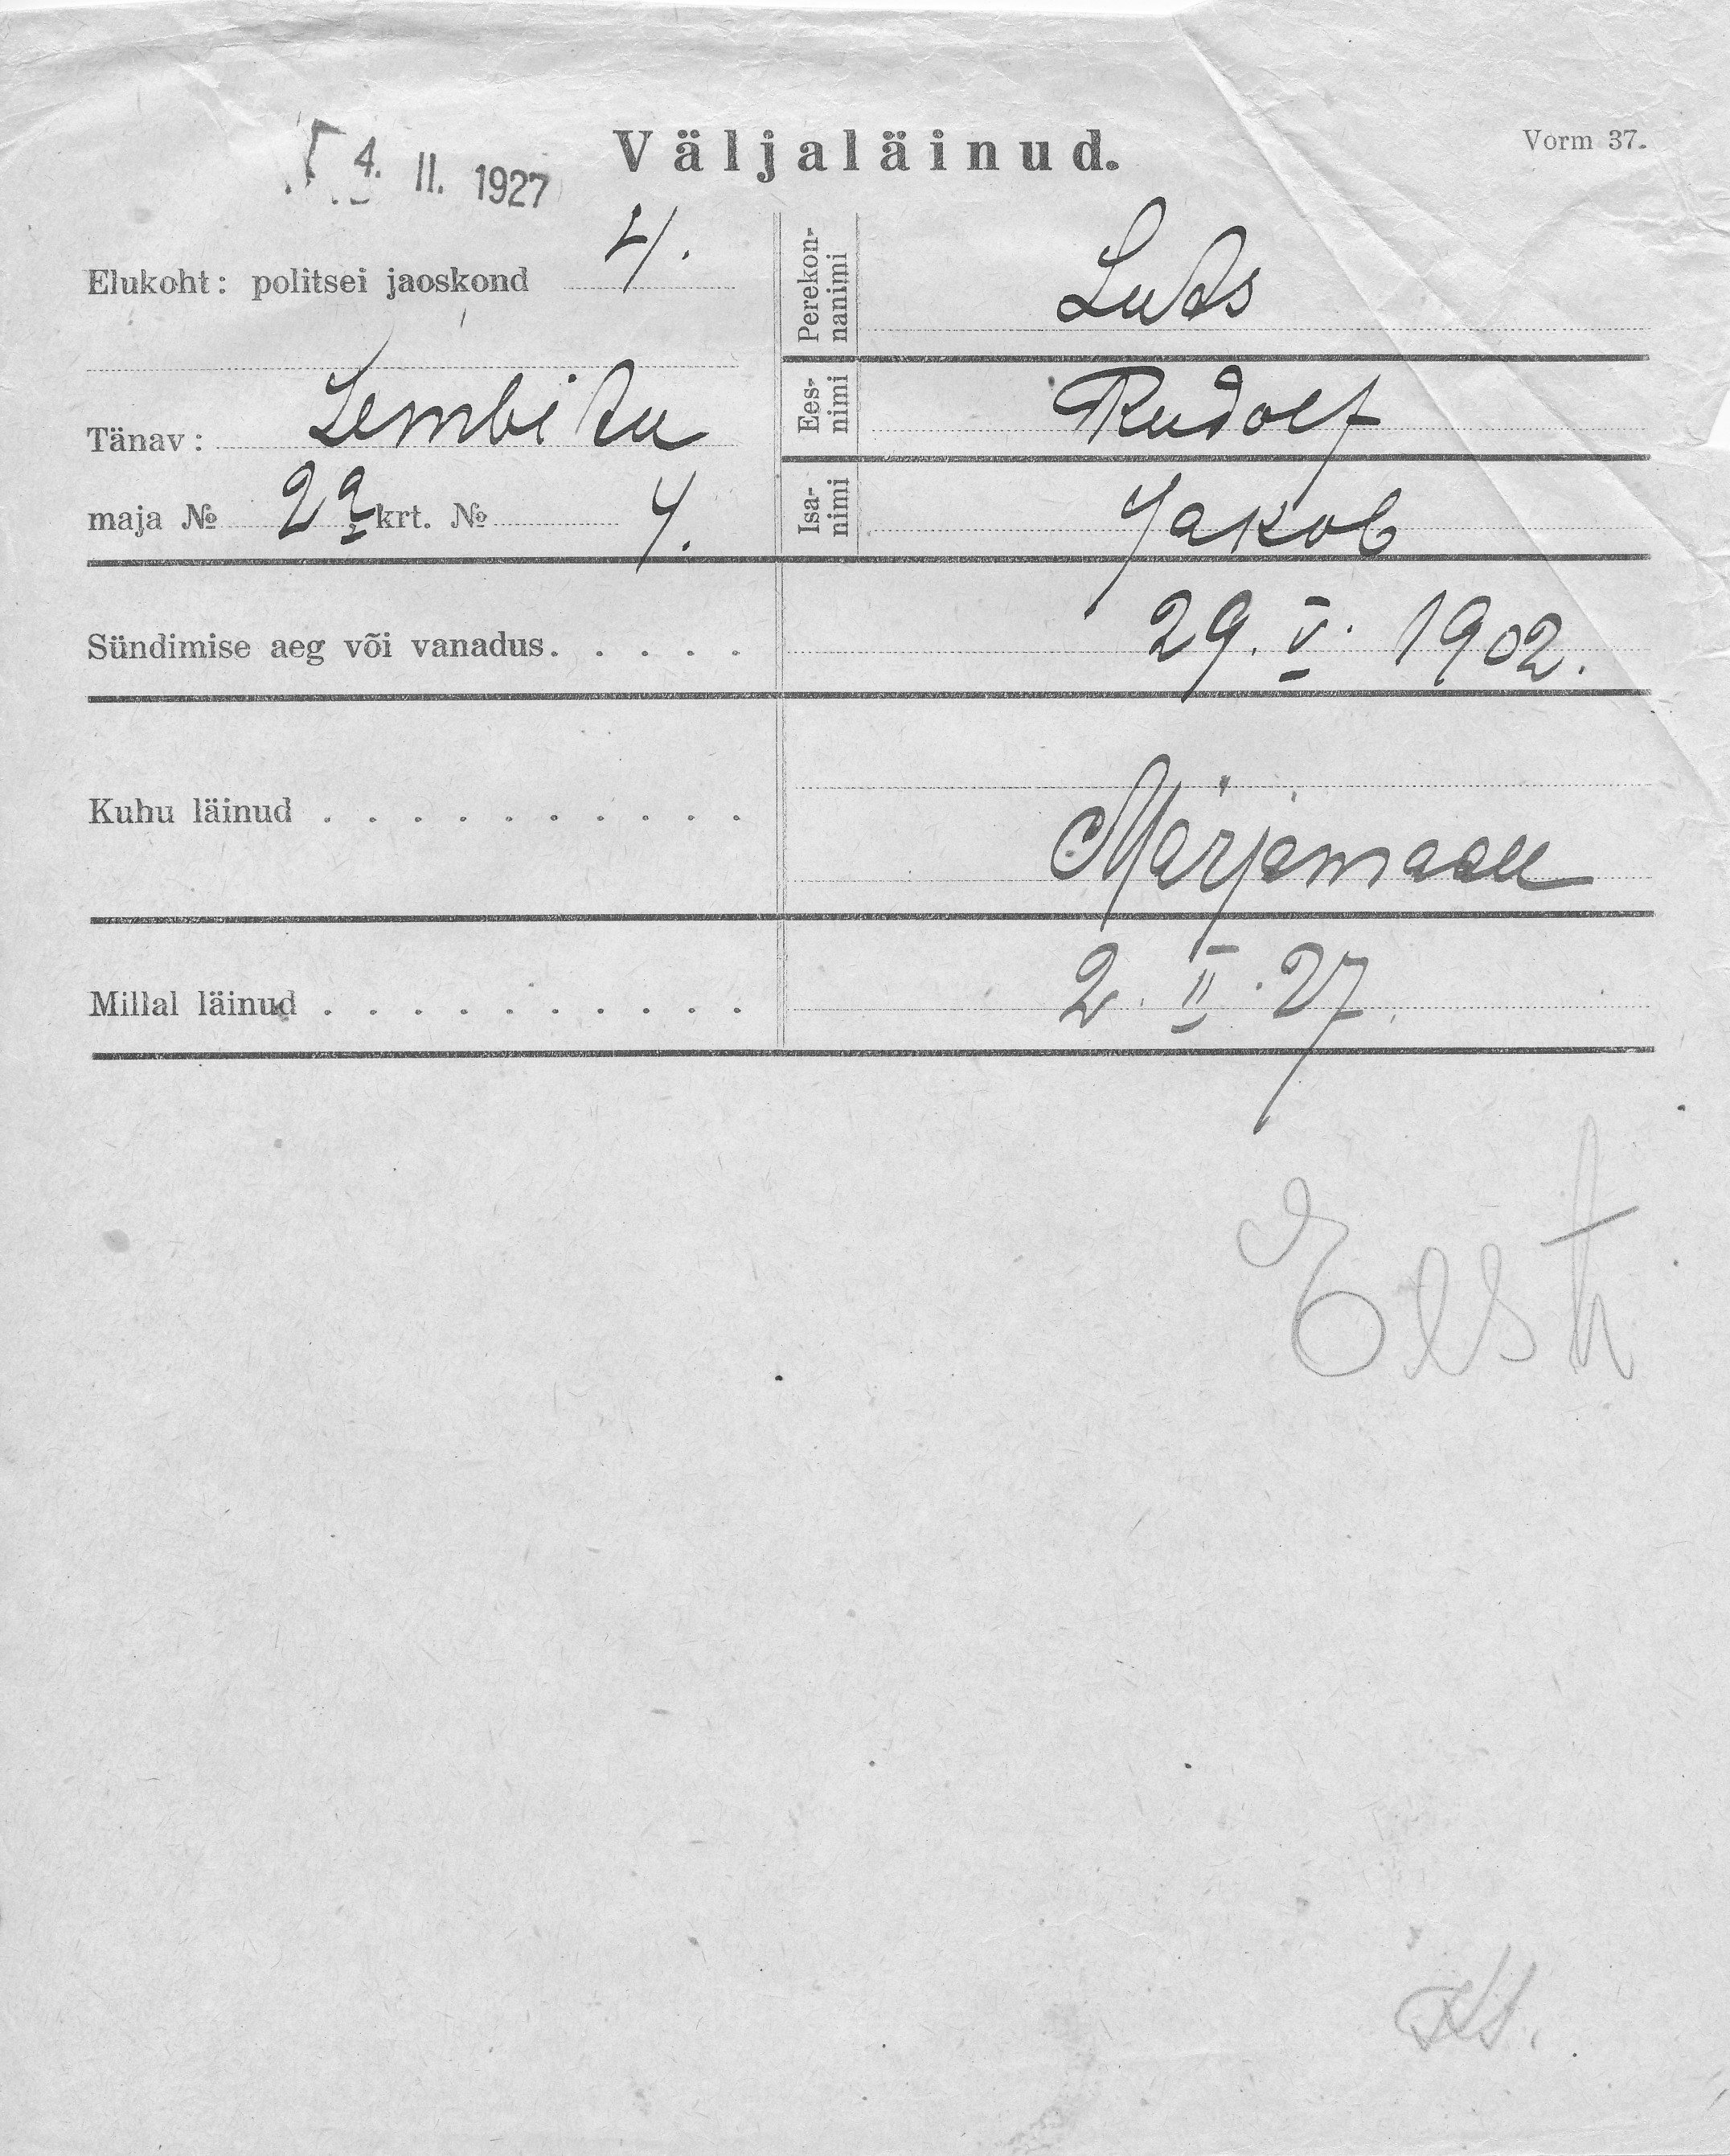 Väljaläinud.
Vorm 37.
4. II. 1927
Elukoht: politsei jaoskond 4.
Tänav: Lembitu
maja № 2a krt. № 4.
Perekon-
nanimi
Ees-
nimi Rudolf
Isa-
nimi Jakob
Sündimise aeg või vanadus. . . . . 29. V. 1902.
Kuhu läinud . . . . . . . . . . Märjamaale
Millal läinud . . . . . . . . . . 2. II. 27.
Eesti